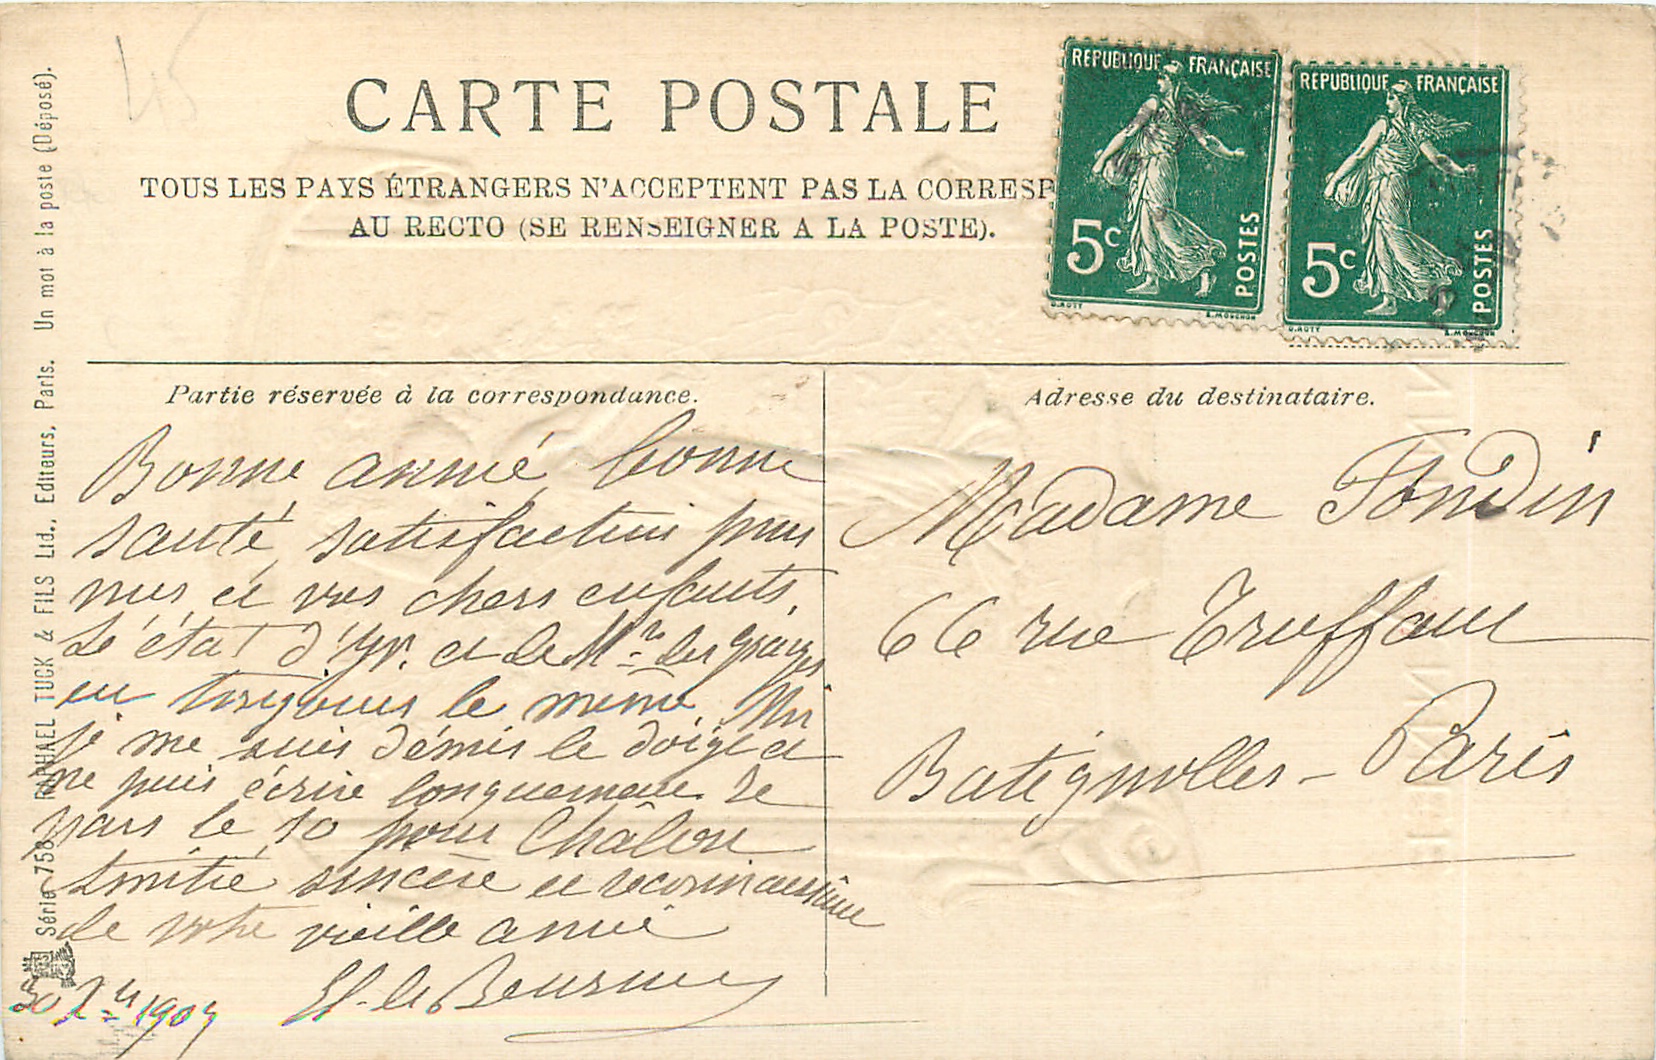 CARTE POSTALE
TOUS LES PAYS ÉTRANGERS N'ACCEPTENT PAS LA CORRESP
AU RECTO (SE RENSEIGNER A LA POSTE).
RÉPUBLIQUE FRANÇAISE
5c
POSTES
O. ROTY
E. MOUCHON
RÉPUBLIQUE FRANÇAISE
5c
POSTES
O. ROTY
E. MOUCHON
45
Partie réservée à la correspondance.
Bonne année, bonne
santé, satisfaction pour
vous et vos chers enfants.
L'état d' et de des
est toujours le même. Moi
je me suis démis le doigt et
ne puis écrire longuement. Je
pars le 10 pour Châlon
Amitié sincère et reconnaissante
de votre vieille amie
le
30 1907
Adresse du destinataire.
Madame Fondin
66 rue Truffaut
Batignolles - Paris
Série 758. RAPHAEL TUCK & FILS Ltd., Editeurs, Paris. Un mot à la poste (Déposé).